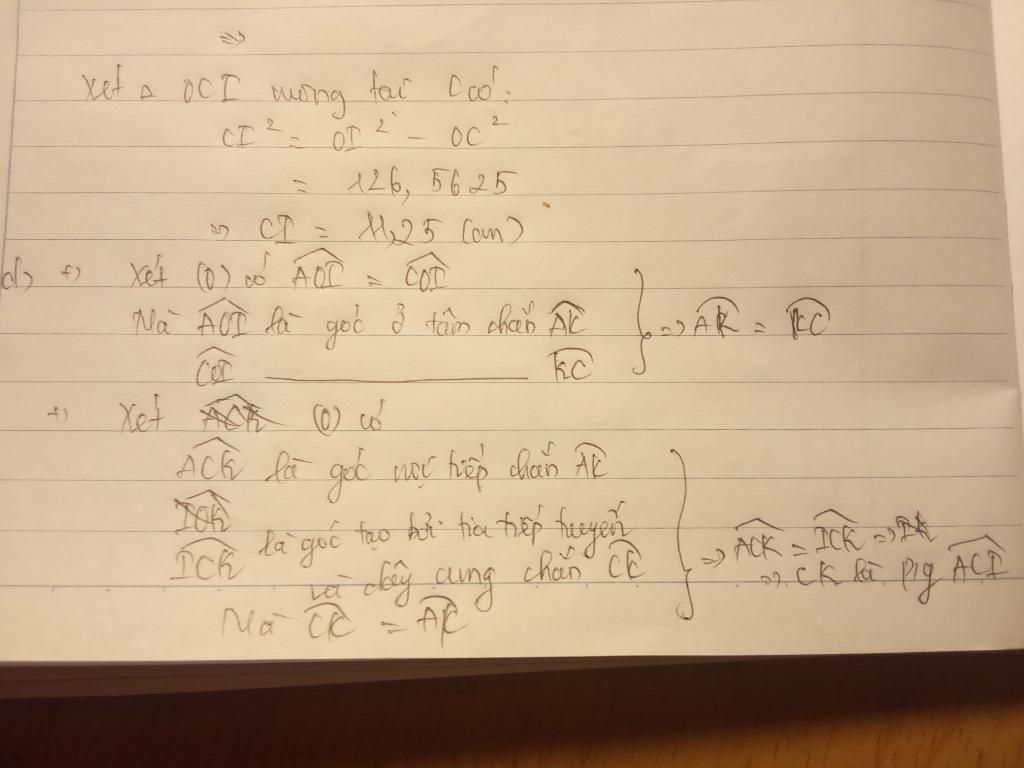 =>
Xét △ OCI vuông tại C có:
CI² = OI² - OC²
= 126,5625
=> CI = 11,25 (cm)
d) +) Xét (O) có AOI = COI
Mà AOI là góc ở tâm chắn AK => AK = KC
COI ________ KC
+) Xét (O) có
ACK là góc nội tiếp chắn AK
ICK là góc tạo bởi tia tiếp tuyến
và dây cung chắn CK => ACK = ICK =>
=> CK là p/g ACI
Mà CK = AK